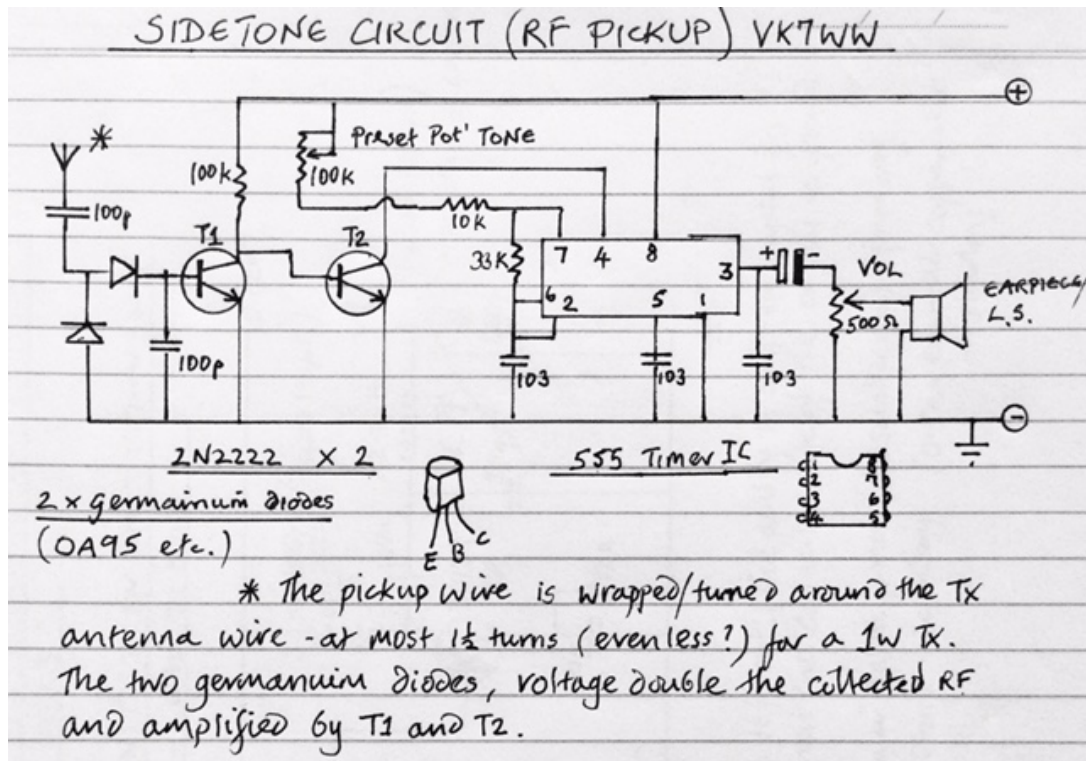 SIDETONE CIRCUIT (RF PICKUP) VK7WW
+
*
Preset Pot' TONE
100k
100K
100p
T1
T2
10k
33K
7 4 8
3
6 2 5 1
+ -
VOL
500Ω
EARPIECE/
L.S.
100p
103
103
103
-
2N2222 x 2
555 Timer IC
1 8
2 7
3 6
4 5
2 x germainuim diodes
(OA95 etc.)
E B C
* The pickup wire is wrapped/turned around the Tx
antenna wire - at most 1½ turns (even less?) for a 1w Tx.
The two germanuim diodes, voltage double the collected RF
and amplified by T1 and T2.